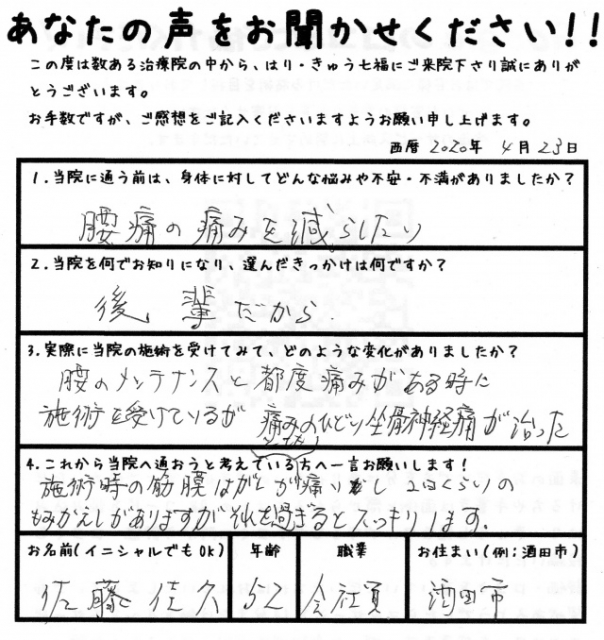 あなたの声をお聞かせください!!
この度は数ある治療院の中から、はり・きゅう七福にご来院下さり誠にありが
とうございます。
お手数ですが、ご感想をご記入くださいますようお願い申し上げます。
西暦 2020年 4月 23日
1.当院に通う前は、身体に対してどんな悩みや不安・不満がありましたか?
腰痛の痛みを減らしたい
2.当院を何でお知りになり、選んだきっかけは何ですか?
後輩だから.
3.実際に当院の施術を受けてみて、どのような変化がありましたか?
腰のメンテナンスと都度痛みがある時に
施術を受けているが 痛みのひどい坐骨神経痛が治った
4.これから当院へ通おうと考えている方へ一言お願いします!
施術時の筋膜はがしが痛
もみかえしがありますがそれを過ぎるとスッキリします.
お名前(イニシャルでもOK) 年齢 職業 お住まい(例:酒田市)
佐藤 佳久 52 会社員 酒田市